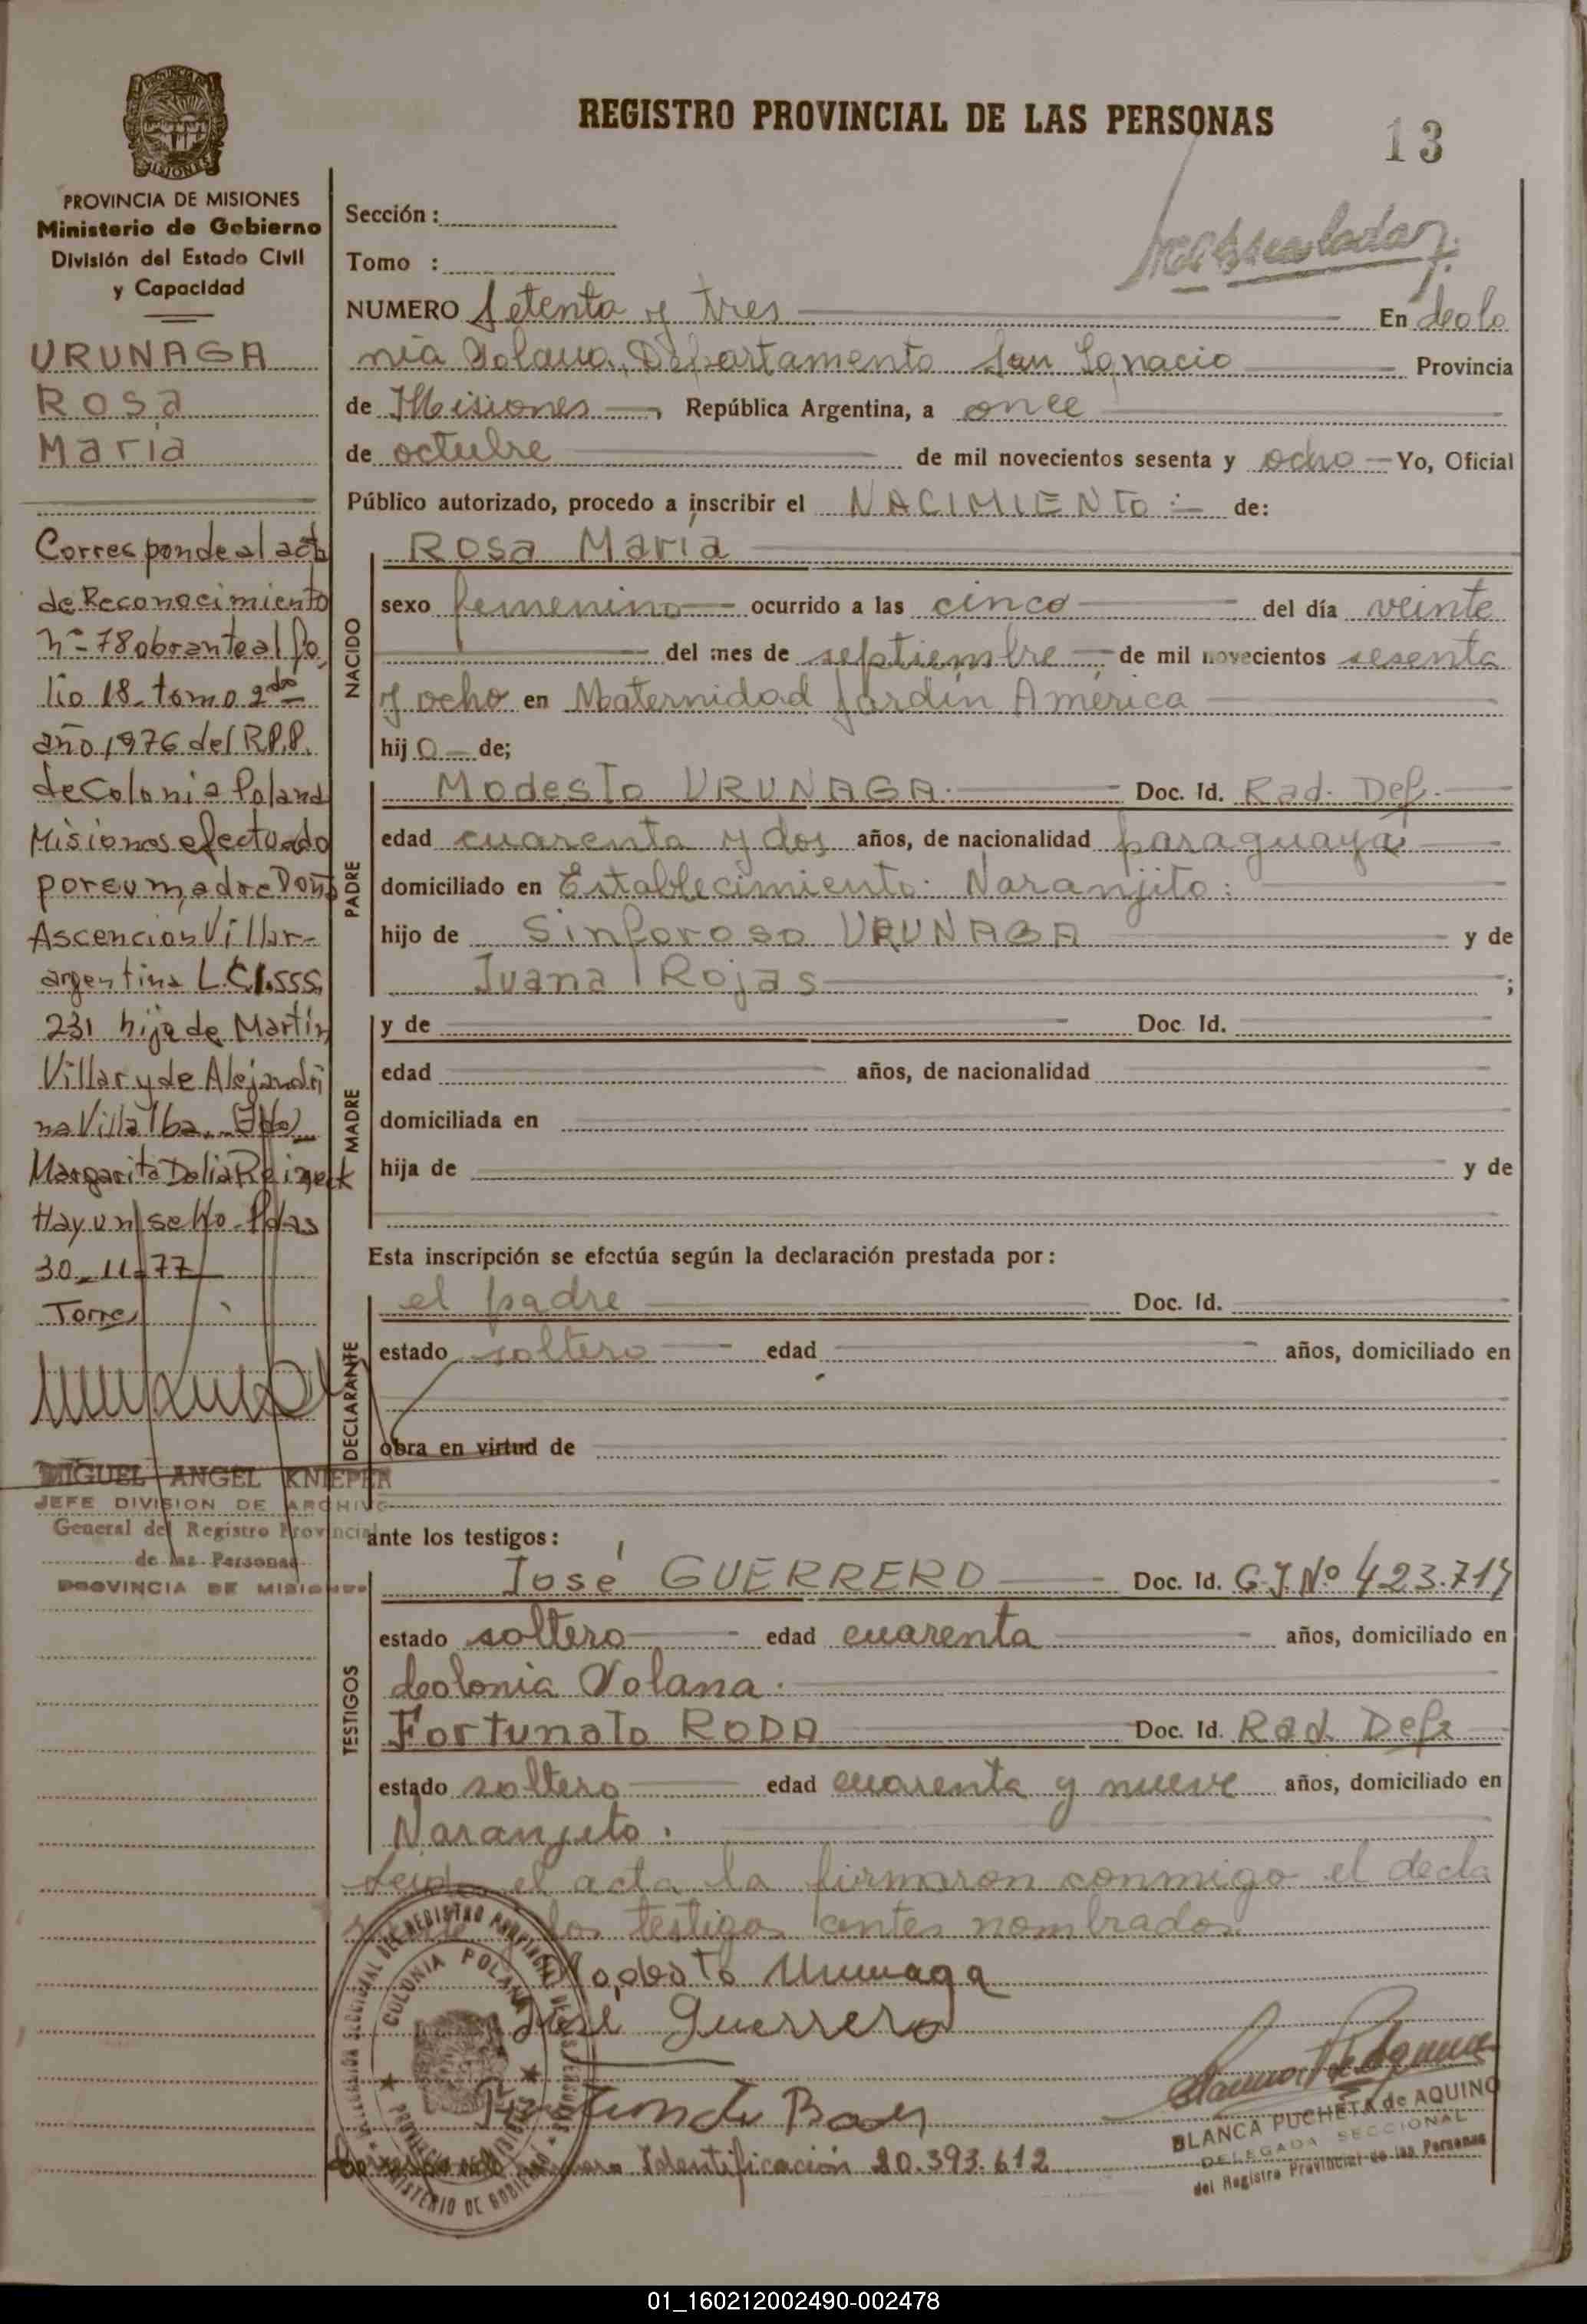 REGISTRO PROVINCIAL DE LAS PERSONAS
13
PROVINCIA DE MISIONES
Ministerio de Gobierno
División del Estado Civil
y Capacidad
URUNAGA
Rosa
María
Corresponde al acta
de Reconocimiento
Nº 78 obrante al fo
lio 18 tomo 2do
año 1976 del R.P.P.
de Colonia Poland
Misiones efectuado
por su madre Doña
Ascencion Villar
argentina L.C. 1.555.
231 hija de Martín
Villar y de Alejandri
na Villalba. Fdo)
Margarita Delia Reineck
Hay un sello. Pdas
30-11-77
Torres
MIGUEL ANGEL KNIEPER
JEFE DIVISION DE ARCHIVO
General del Registro Provincial
de las Personas
PROVINCIA DE MISIONES
Sección :
Tomo :
NUMERO Setenta y tres En Colo
nia Polana, Departamento San Ignacio Provincia
de Misiones, República Argentina, a once
de octubre de mil novecientos sesenta y ocho Yo, Oficial
Público autorizado, procedo a inscribir el NACIMIENTO de:
NACIDO
Rosa María
sexo femenino ocurrido a las cinco del día veinte
del mes de septiembre de mil novecientos sesenta
y ocho en Maternidad Jardín América
hij a de;
PADRE
Modesto URUNAGA Doc. Id. Rad. Def.
edad cuarenta y dos años, de nacionalidad paraguaya
domiciliado en Establecimiento Naranjito
hijo de Sinforoso URUNAGA y de
Juana Rojas ;
MADRE
y de Doc. Id.
edad años, de nacionalidad
domiciliada en
hija de y de
Esta inscripción se efectúa según la declaración prestada por :
DECLARANTE
el padre Doc. Id.
estado soltero edad años, domiciliado en
obra en virtud de
ante los testigos :
TESTIGOS
José GUERRERO Doc. Id. C.I. Nº 423.717
estado soltero edad cuarenta años, domiciliado en
Colonia Polana.
Fortunato RODA Doc. Id. Rad. Def.
estado soltero edad cuarenta y nueve años, domiciliado en
Naranjito.
Leida el acta la firmaron conmigo el decla
rante y los testigos antes nombrados.
Modesto Urunaga
José Guerrero
COLONIA POLANA
BLANCA PUCHETA de AQUINO
DELEGADA SECCIONAL
del Registro Provincial de las Personas
Identificación 20.393.612
01_160212002490-002478